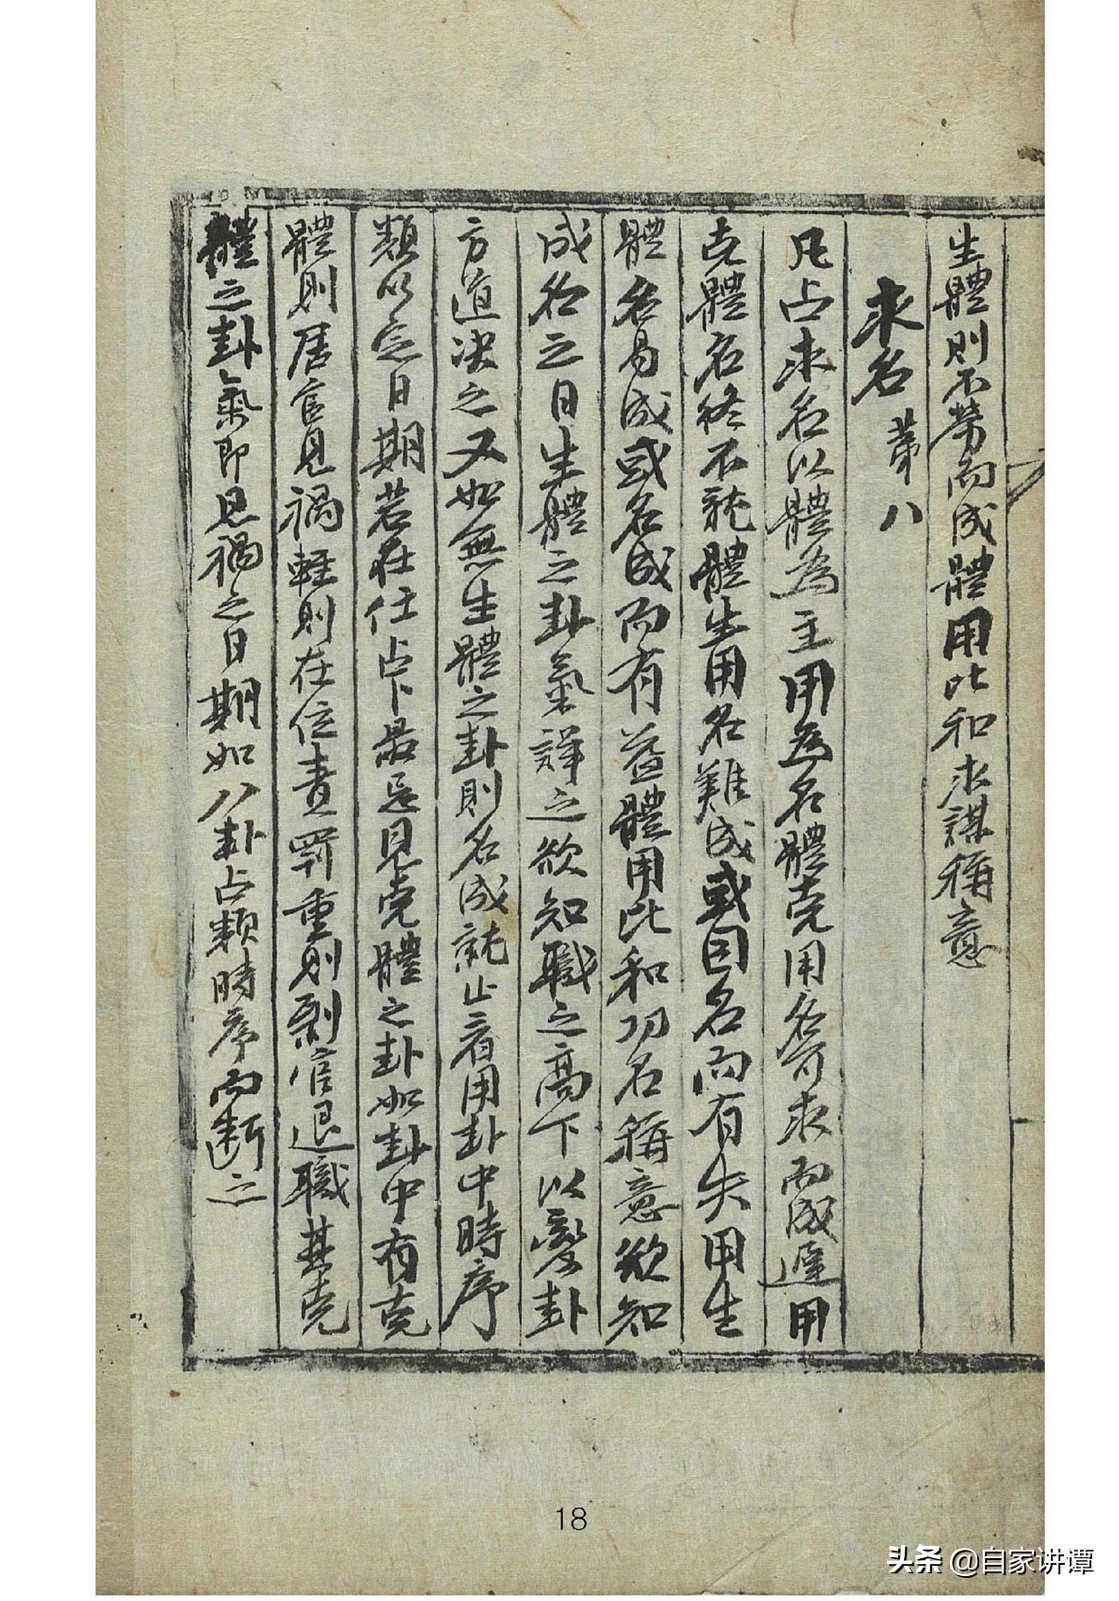 生體則不勞而成體用比和求謀稱意
求名 第八
凡占求名以體為主用為名體克用名可求而成遲用
克體名終不就體生用名難成或因名而有失用生
體名易成或名成而有益體用比和功名稱意欲知
成名之日生體之卦氣詳之欲知職之高下以變卦
方道决之又如無生體之卦則名成就止看用卦中時序
類以定日期若在仕占卜最忌見克體之卦如卦中有克
體則居官見禍輕則在位責罰重則剥官退職其克
體之卦氣即見禍之日期如八卦占類時序而断之
18
头条 @自家讲谭